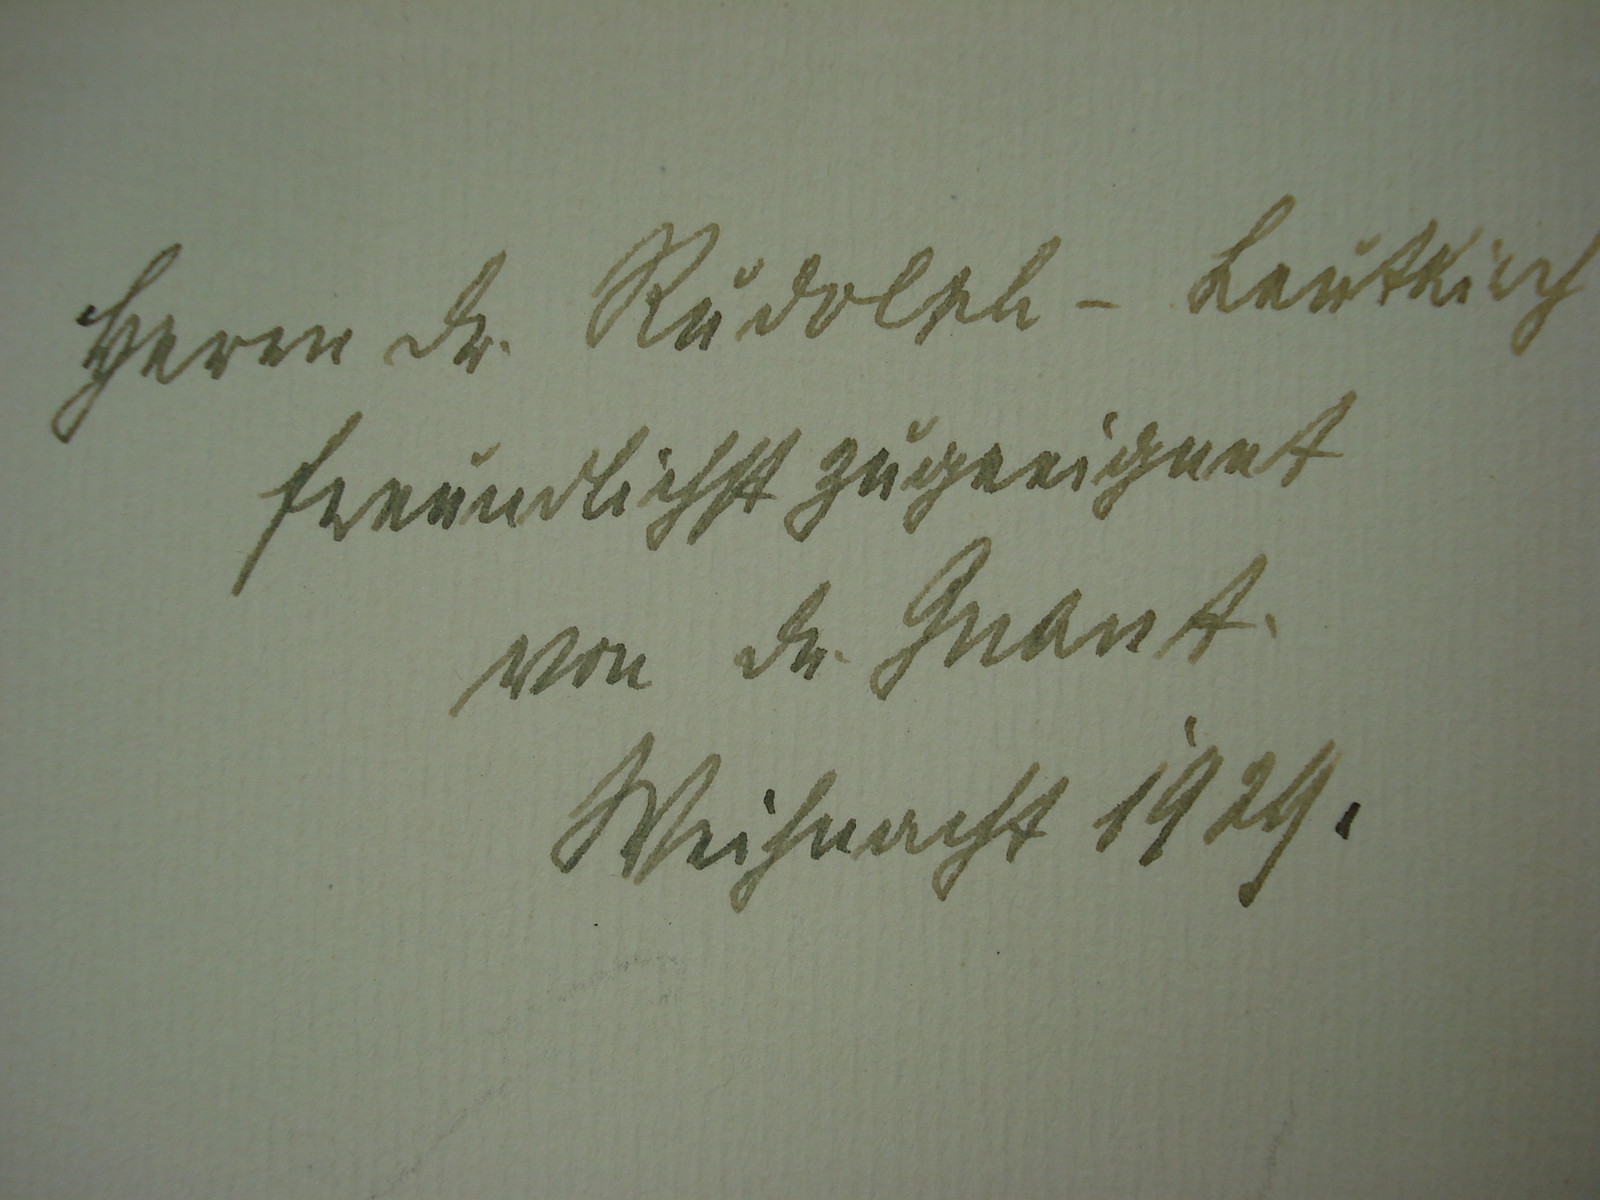 Herrn Dr. Rudolph - Leutkirch
freundlichst zugeeignet
von Dr. Gnant.
Weihnacht 1929.